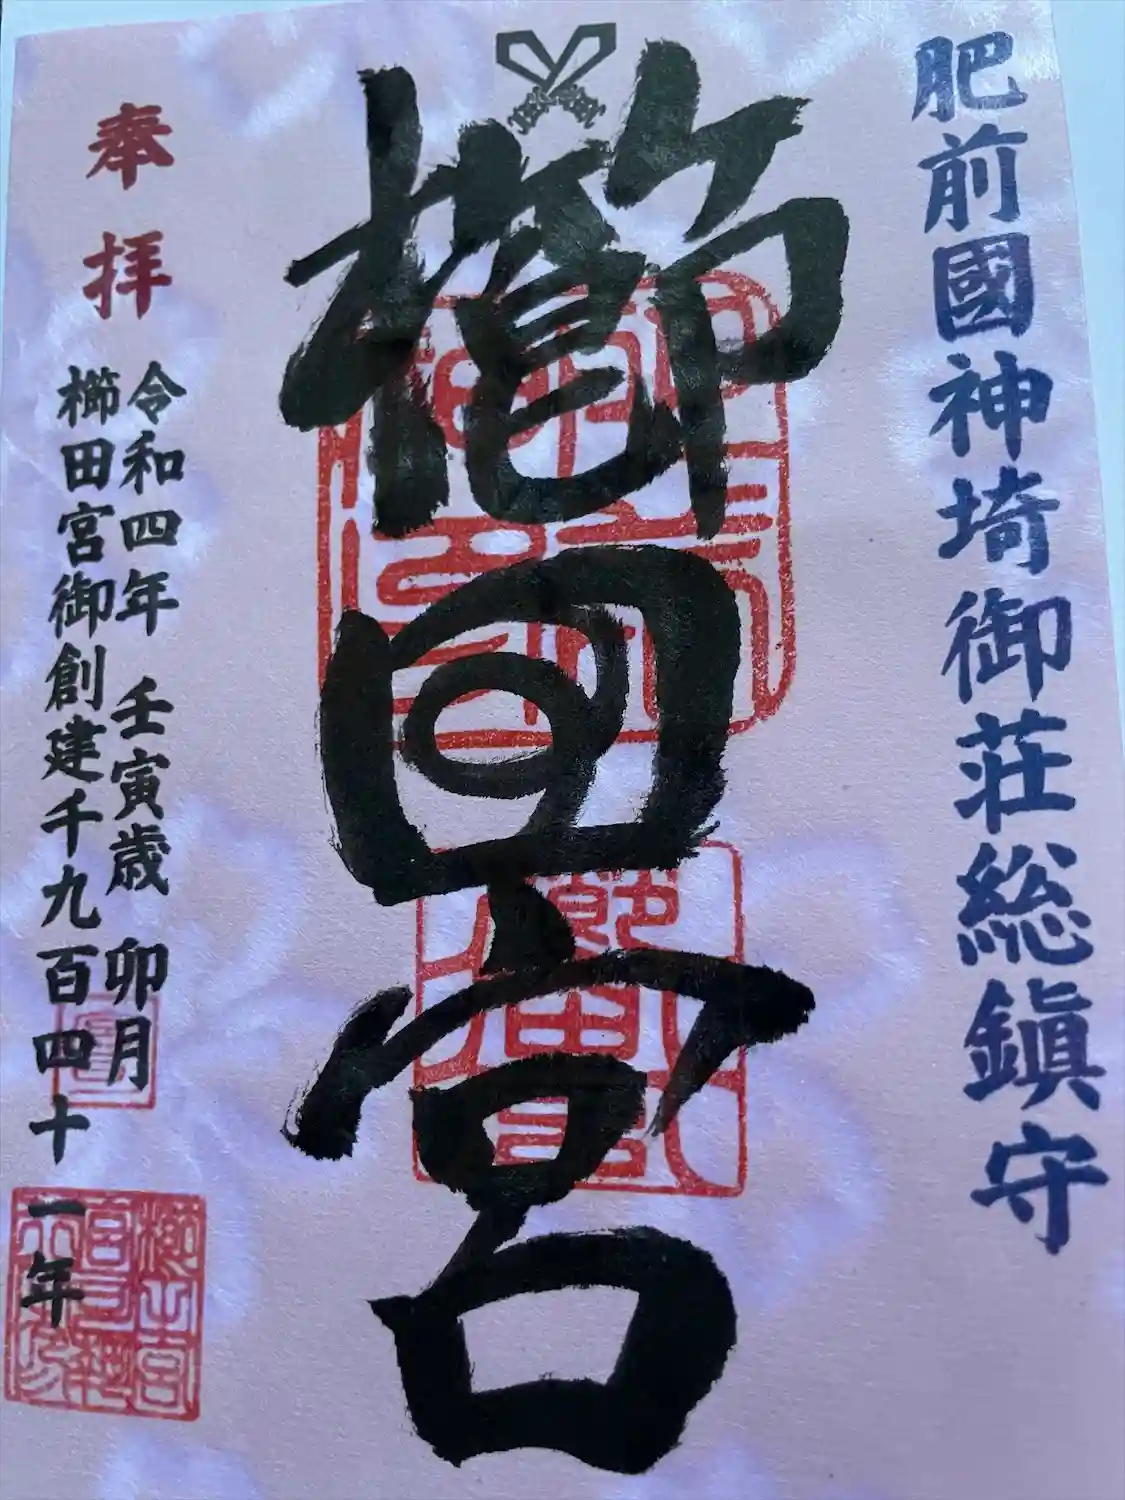 肥前國神埼御荘総鎮守
櫛田宮
奉拝
令和四年 壬寅歳 卯月
櫛田宮御創建千九百四十一年